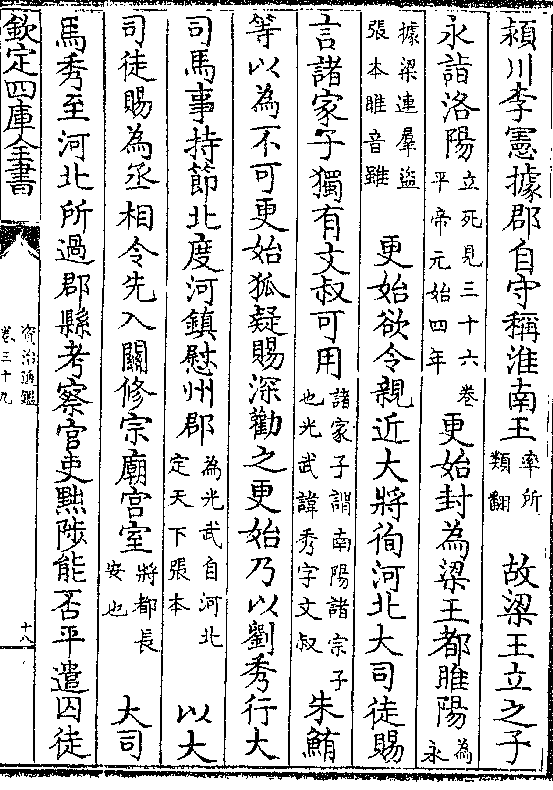 潁川李憲據郡自守稱淮南王率所類翻故梁王立之子
永詣洛陽立死見三十六卷平帝元始四年更始封為梁王都睢陽為永
據梁連羣盜張本睢音雖更始欲令親近大將徇河北大司徒賜
言諸家子獨有文叔可用諸家子謂南陽諸宗子也光武諱秀字文叔朱鮪
等以為不可更始狐疑賜深勸之更始乃以劉秀行大
司馬事持節北度河鎮慰州郡為光武自河北定天下張本以大
司徒賜為丞相令先入關修宗廟宮室將都長安也大司
馬秀至河北所過郡縣考察官吏黜陟能否平遣囚徒
欽定四庫全書
資治通鑑
卷三十九
十八